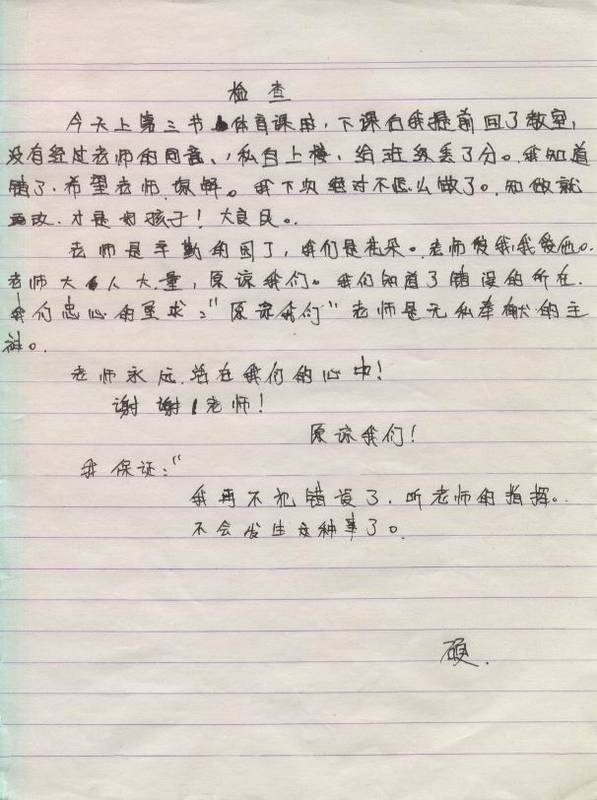 检查
今天上第三节体育课时，下课后我提前回了教室，
没有经过老师的同意、私自上楼，给班级丢了分。我知道
错了，希望老师原解。我下次绝对不怎么做了。知做就
改，才是好孩子！大良民。
老师是辛勤的园丁，我们是花朵。老师爱我，我爱他。
老师大人大量，原谅我们。我们知道了错误的所在，
我们忠心的垦求："原谅我们"老师是无私奉献的主
神。
老师永远活在我们的心中！
谢谢老师！
原谅我们！
我保证："
我再不犯错误了，听老师的指挥。
不会发生这种事了。
硕.